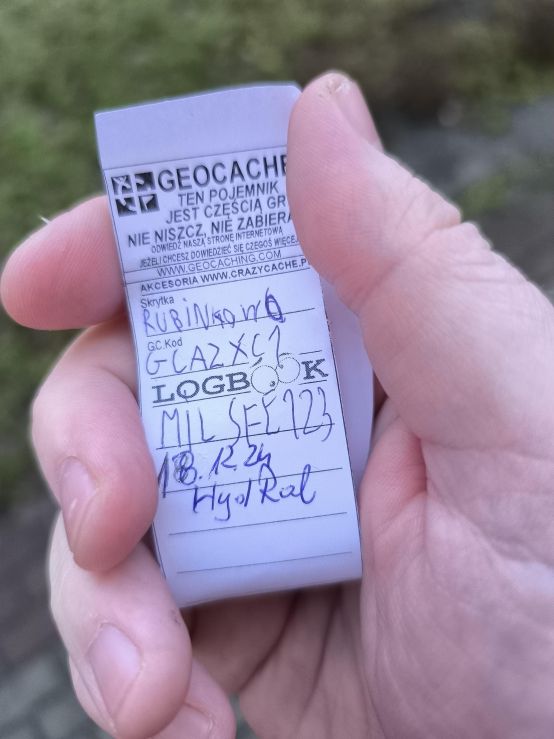 GEOCACHE
TEN POJEMNIK
JEST CZĘŚCIĄ GR
NIE NISZCZ, NIE ZABIERA
ODWIEDŹ NASZĄ STRONĘ INTERNETOWĄ
JEŻELI CHCESZ DOWIEDZIEĆ SIĘ CZEGOŚ WIĘCEJ
WWW.GEOCACHING.COM
AKCESORIA WWW.CRAZYCACHE.P
Skrytka
RUBINKOWO
GC.Kod
GCAZXC1
LOGBOOK
MILSEE123
18.12.24